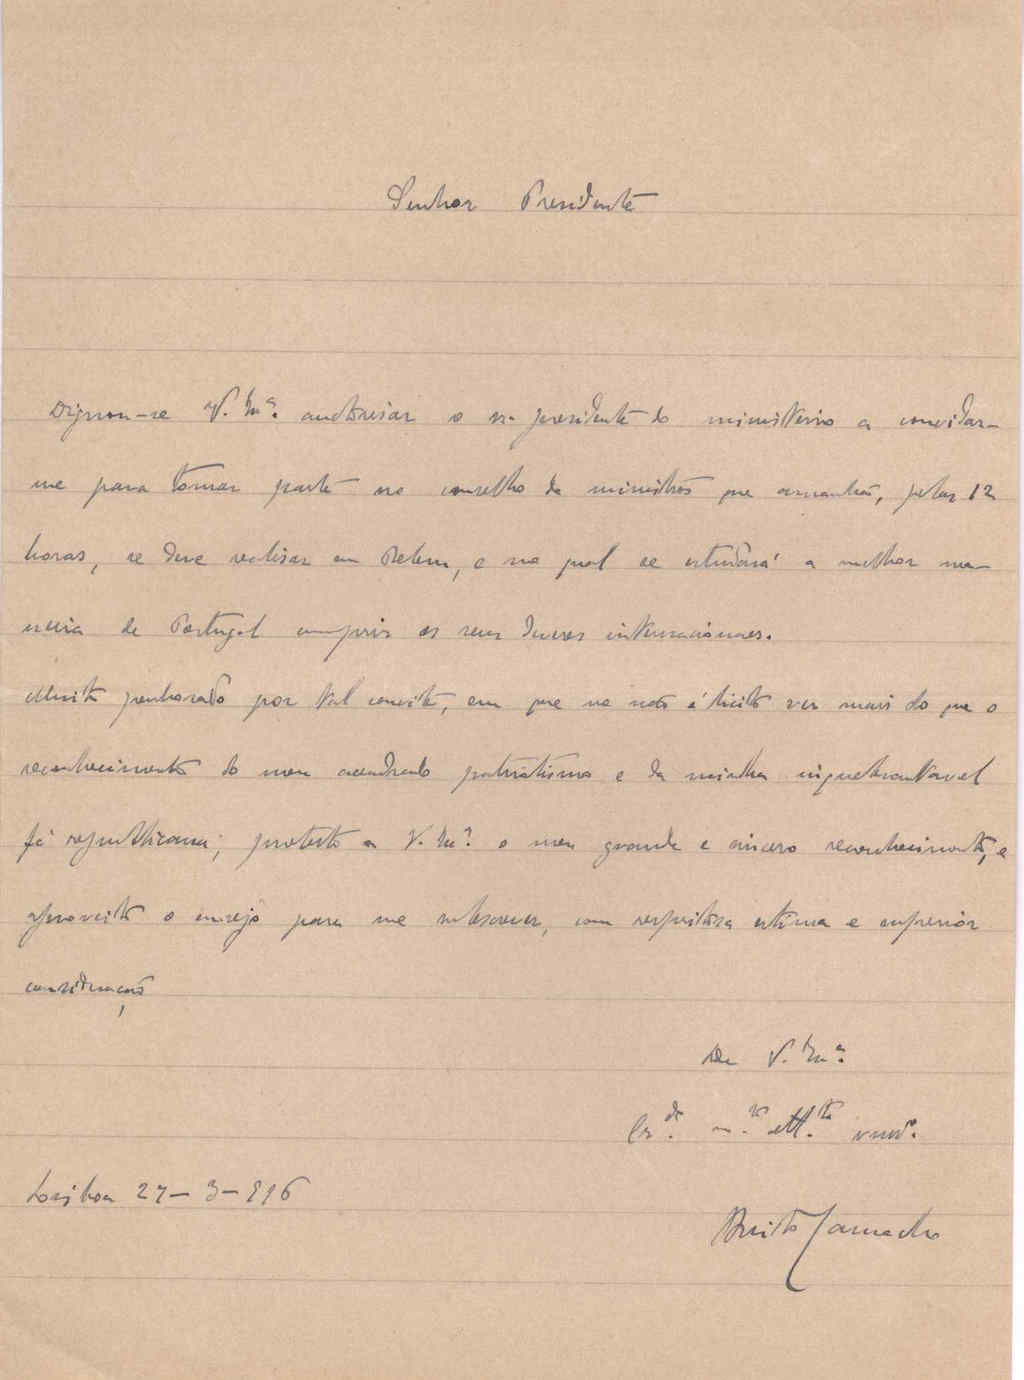 Senhor Presidente
Dignou-se V. Exª. auctorisar o sr. presidente do ministerio a convidar-
me para tomar parte no conselho de ministros que amanhã, pelas 12
horas, se deve realisar em Belem, e no qual se estudará a melhor ma-
neira de Portugal cumprir os seus deveres internacionaes.
Muito penhorado por tal convite, em que me não é licito ver mais do que o
reconhecimento do meu acendrado patriotismo e da minha inquebrantavel
fé republicana; protesto a V. Exª. o meu grande e sincero reconhecimento, e
aproveito o ensejo para me subscrever, com respeitosa estima e superior
consideração
De V. Exª.
Crdº. mtº. Attº. venº.
Lisboa 27-3-916
Brito Camacho